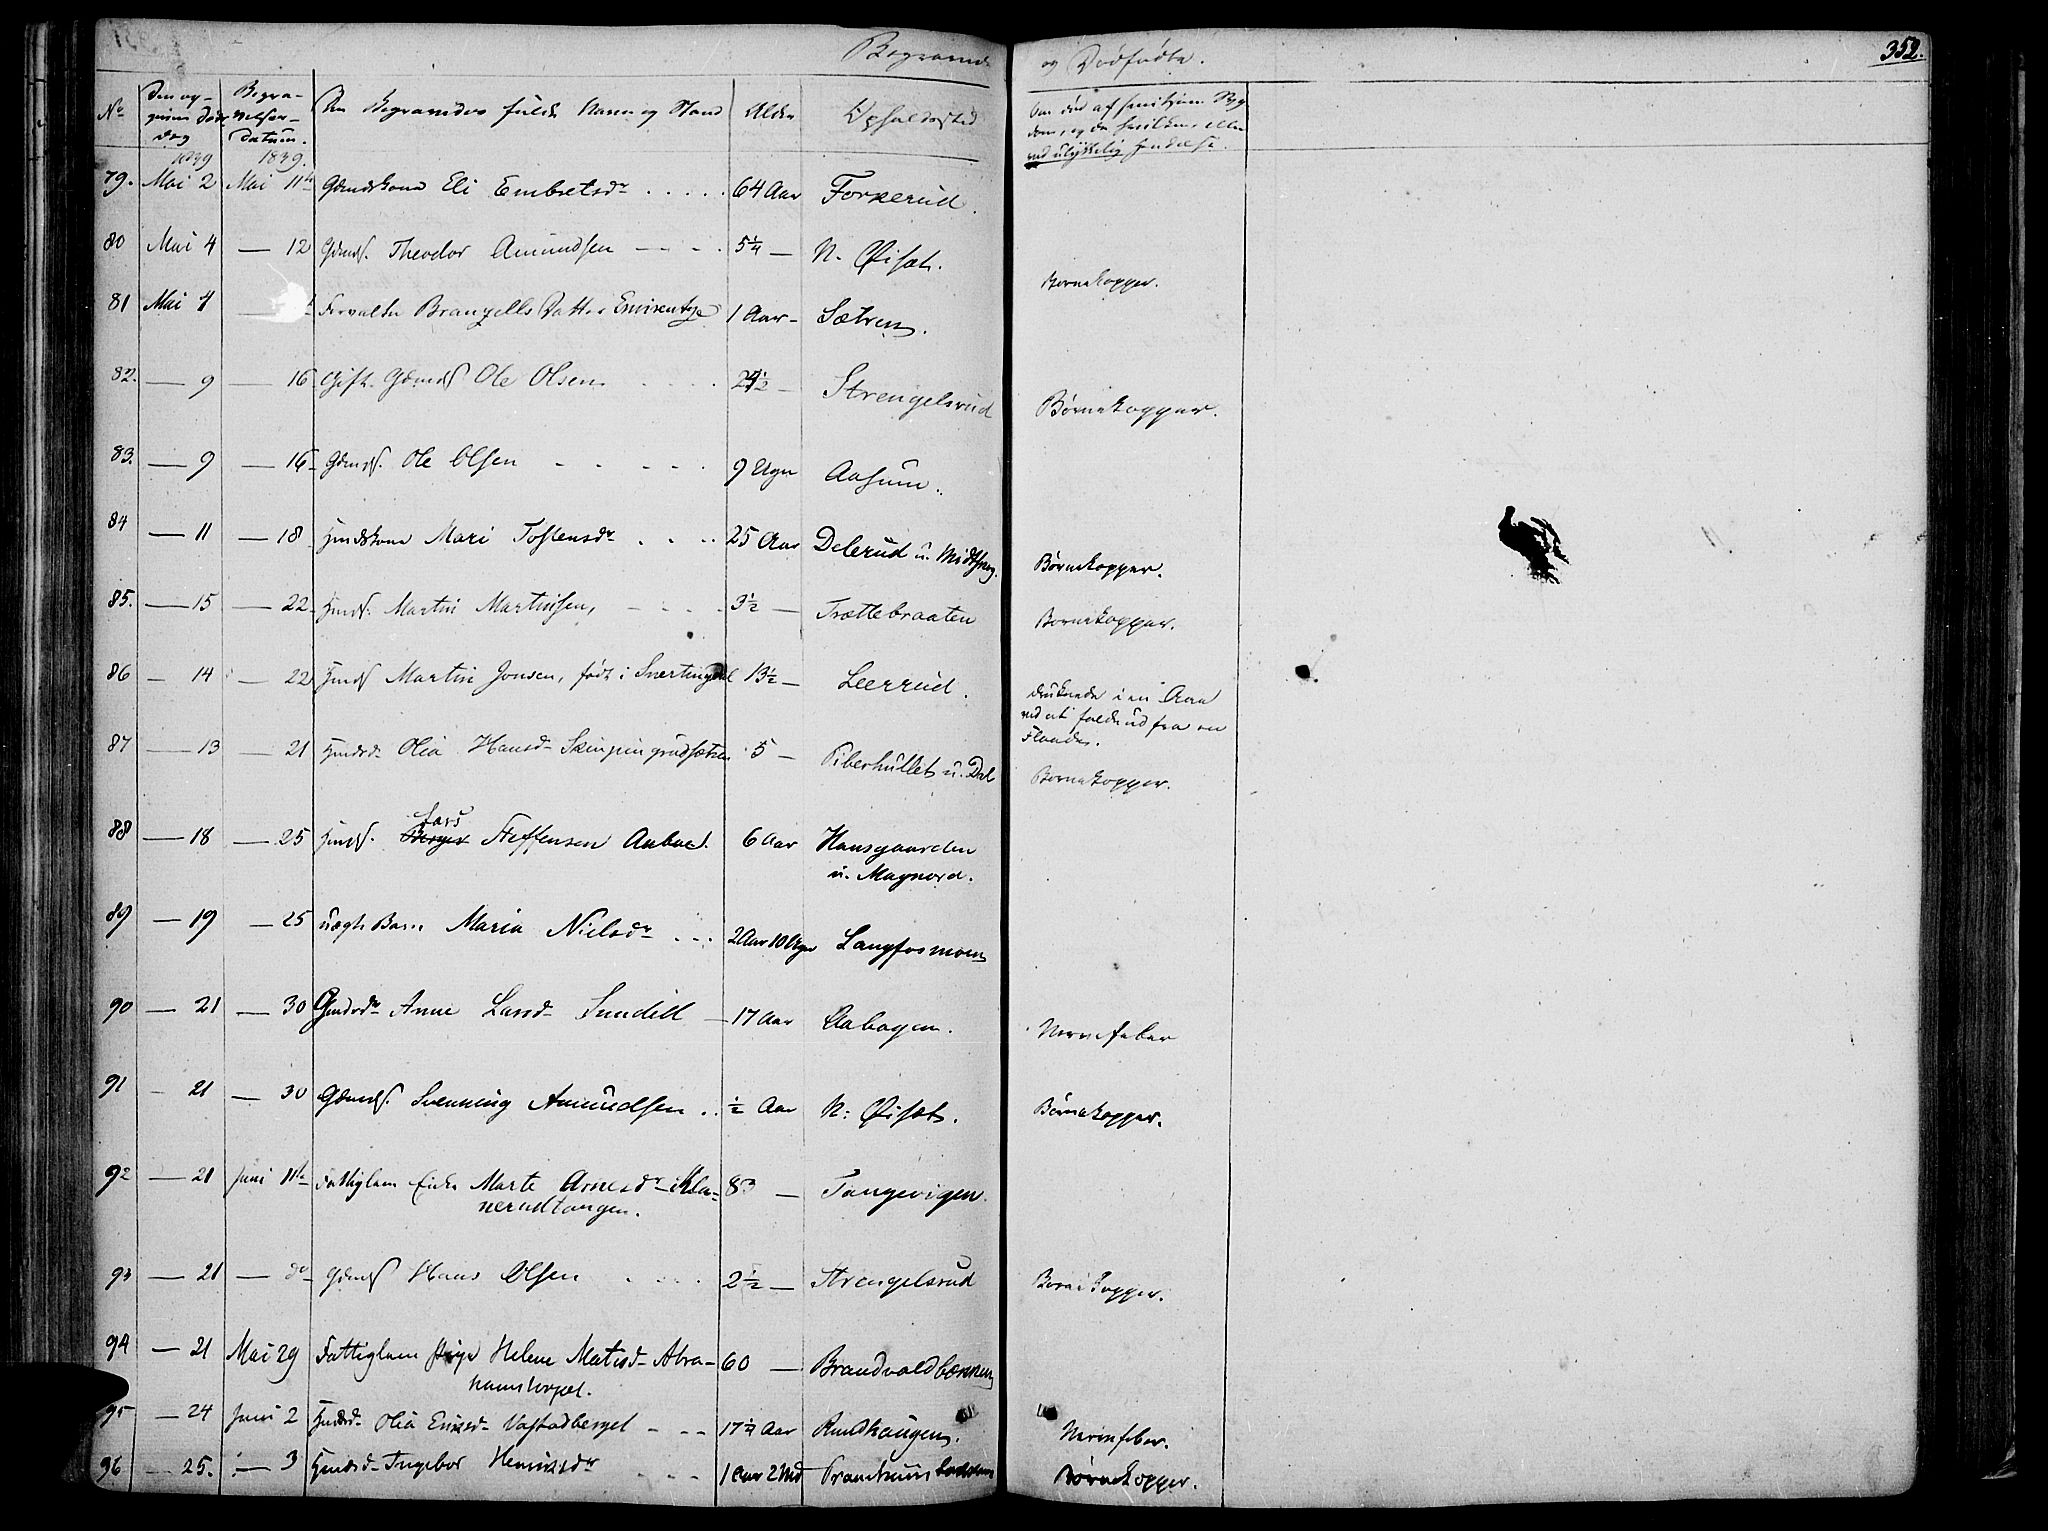 Begravede og Dødfødte. 352.
No Den opgivne Døds Dag Begravelses-Datum. Den Begravedes fulde Navn og Stand Alder Opholdssted Om død af smitsom Sygdom, og da hvilken, eller ved ulykkelig Hendelse.
1839 1839.
79. Mai 2 Mai 11te Gmdskone Eli Embretsdr 64 Aar Forkerud.
80 Mai 4 — 12 Gdmds. Theodor Amundsen 5¼ — N. Øiset. Børnekopper.
81 Mai 4 — Forvalter Datter 1 Aar - Sætren.
82. — 9 — 16 Gift Gdmds Ole Olsen — Strengelsrud Børnekopper.
83. — 9 — 16 Gdmds. Ole Olsen 9 Ugr Aasum.
84 — 11 — 18 Hmdskone Mari Tostensdr 25 Aar Delerud u. Midtskog. Børnekopper.
85. — 15 — 22 Hmds. Martin Martinsen, 3½ — Trættebraaten Børnekopper.
86 — 14 — 22 Hmds Martin Jonsen, født i Snertingdal 13½ — Leerrud. druknede i en Aaa ved at falde ud fra en Flaade.
87 — 13 — 21 Hmdsd. Olia Hansd. 5 — Piberhullet u. Dal Børnekopper.
88 — 18 — 25 Hmds. Lars Steffensen 6 Aar Hansgaarden u. Magnord.
89 — 19 — 25 uægte Barn Maria Nielsdr 2 Aar 10 Ugr Langfosmoen
90 — 21 — 30 Gmdsdr Anne Larsd. 17 Aar Aabogen. Nervefeber
91 - 21 — 30 Gdmds. Svenning Amundsen ½ Aar N: Øiset. Børnekopper.
92 — 21 Juni 11te Fattiglem Enke Marte Arnesdr i Klanerudtangen. 83 — Tangevigen.
93 — 21 — do Gdmds Hans Olsen 2½ — Strengelsrud Børnekopper.
94 — 21 Mai 29 Fattiglem Pige Helene Matisd. Abrahamstorpet. 60 — Brandvoldbækken
95 — 24 Juni 2 Hmdsd. Olia Vastadberget 17¼ Aar Rudhaugen. Nervefeber.
96 — 25. — 3 Hmdsd. Ingebor Henriksdr 1 Aar 2 Md Børnekopper.